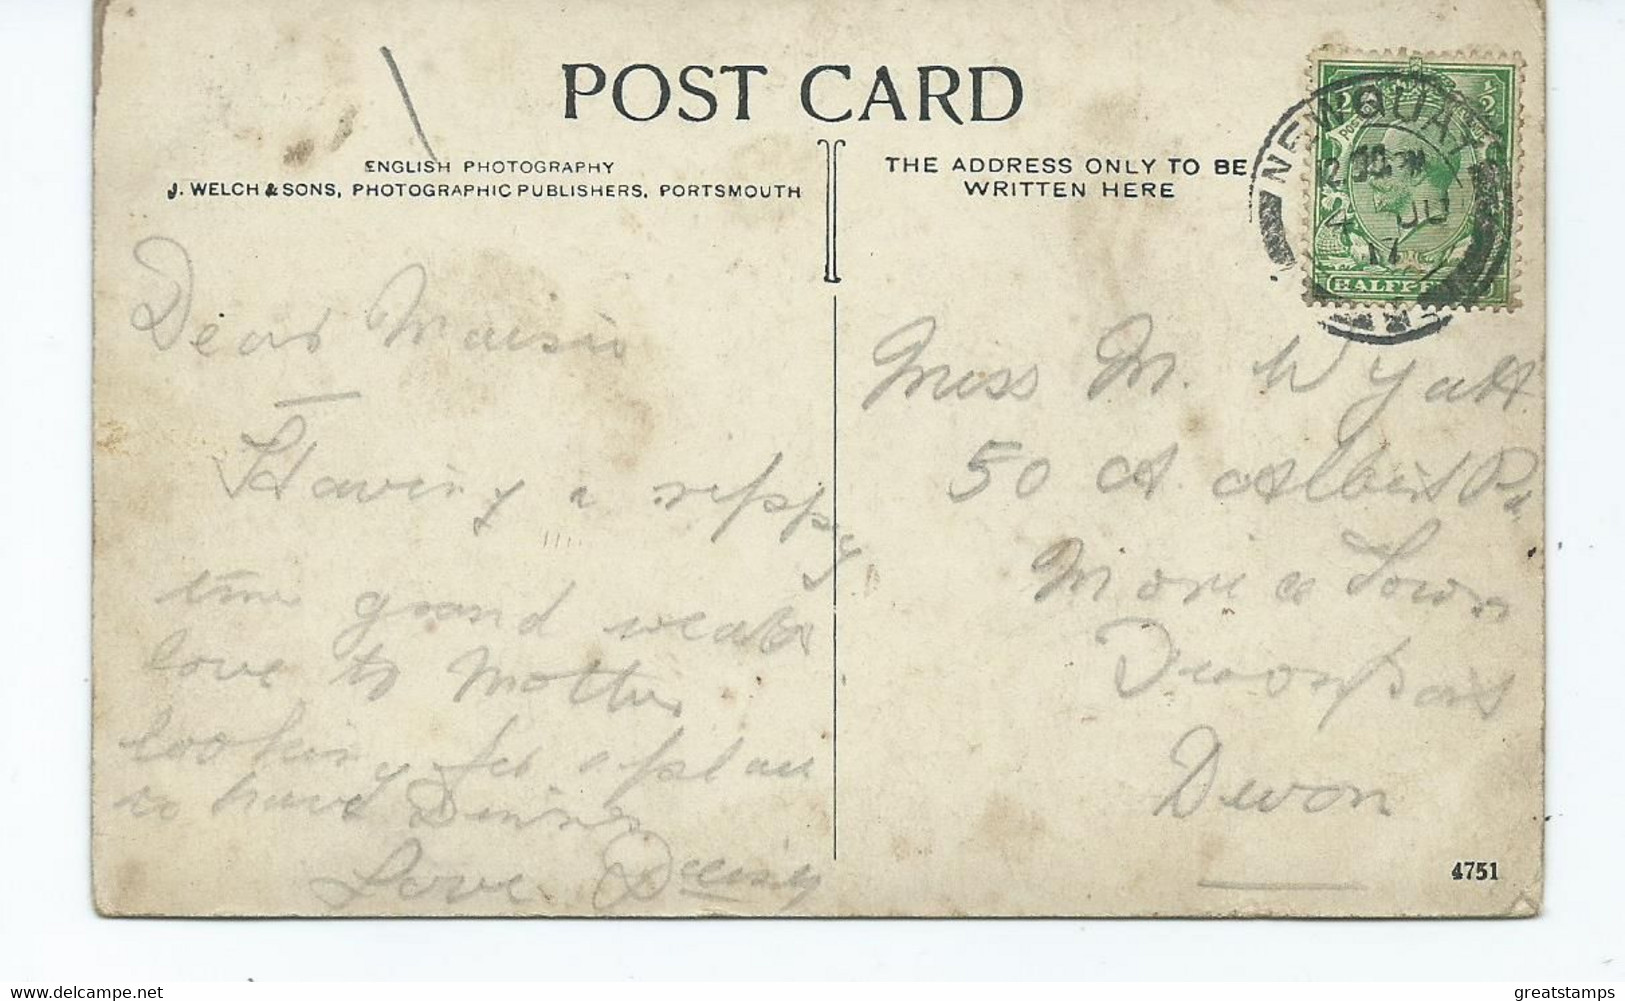 POST CARD
ENGLISH PHOTOGRAPHY
J. WELCH & SONS, PHOTOGRAPHIC PUBLISHERS, PORTSMOUTH
THE ADDRESS ONLY TO BE
WRITTEN HERE
NEWQUAY
12 30 PM
4 JU
17
HALFPE
Dear Maisie
Having a rippy
time grand weather
love to Mother
looking for a place
to have Dinner
Love
Miss M. Wyatt
50 A Albert Rd
Morice Town
Devonport
Devon
4751
greatstamps delcampe.net